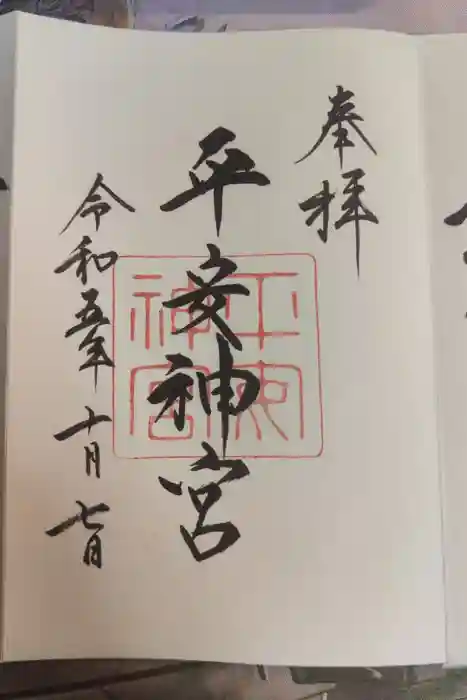 奉拝
平安神宮
平安神宮
令和五年十月七日